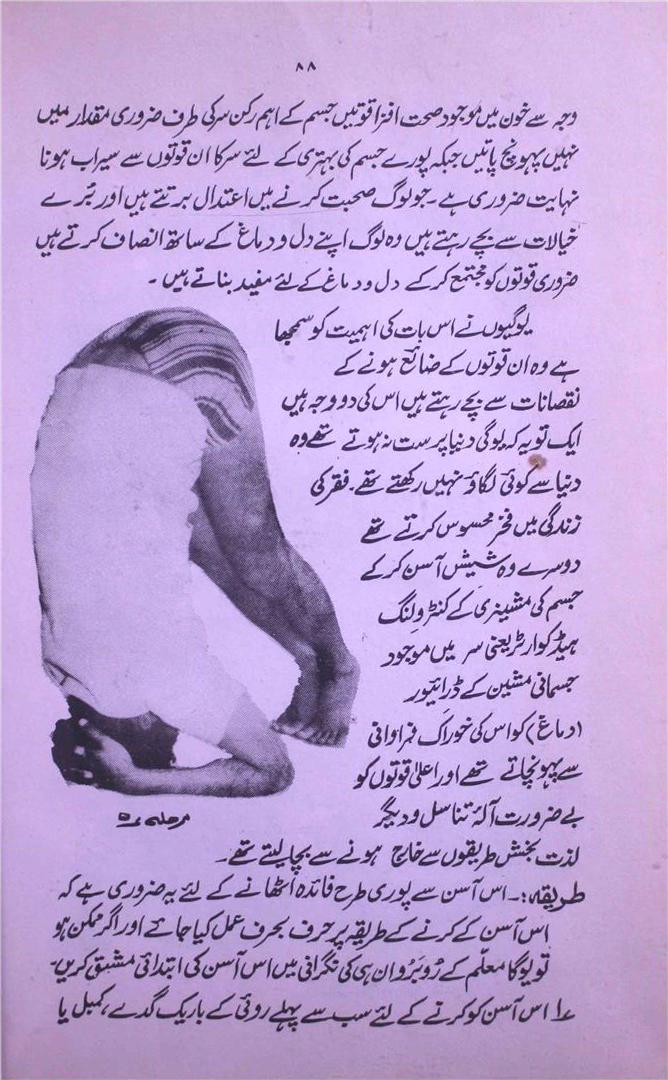 ۸۸
وجہ سے خون میں موجود صحت افزا قوتیں جسم کے اہم رکن سر کی طرف ضروری مقدار میں
نہیں پہونچ پاتیں جبکہ پورے جسم کی بہتری کے لئے سر کا ان قوتوں سے سیراب ہونا
نہایت ضروری ہے۔ جو لوگ صحبت کرنے میں اعتدال برتتے ہیں اور بُرے
خیالات سے بچے رہتے ہیں وہ لوگ اپنے دل و دماغ کے ساتھ انصاف کرتے ہیں
ضروری قوتوں کو مجتمع کرکے دل و دماغ کے لئے مفید بناتے ہیں۔
یوگیوں نے اس بات کی اہمیت کو سمجھا
ہے وہ ان قوتوں کے ضائع ہونے کے
نقصانات سے بچے رہتے ہیں اس کی دو وجہ ہیں
ایک تو یہ کہ یوگی دنیا پرست نہ ہوتے تھے وہ
دنیا سے کوئی لگاؤ نہیں رکھتے تھے۔ فقر کی
زندگی میں فخر محسوس کرتے تھے
دوسرے وہ شیشں آسن کرکے
جسم کی مشینری کے کنٹرولنگ
ہیڈ کوارٹر یعنی سر میں موجود
جسمانی مشین کے ڈرائیور
(دماغ) کو اس کی خوراک فراوانی
سے پہونچاتے تھے اور اعلیٰ قوتوں کو
بے ضرورت آلۂ تناسل و دیگر
لذت بخش طریقوں سے خارج ہونے سے بچا لیتے تھے۔
مرحلہ ۵
طریقہ:۔ اس آسن سے پوری طرح فائدہ اٹھانے کے لئے یہ ضروری ہے کہ
اس آسن کے کرنے کے طریقہ پر حرف بحرف عمل کیا جائے اور اگر ممکن ہو
تو یوگا معلّم کے رُوبَرُو ان ہی کی نگرانی میں اس آسن کی ابتدائی مشق کریں۔
۱؍ اس آسن کو کرنے کے لئے سب سے پہلے روئی کے باریک گدے، کمبل یا